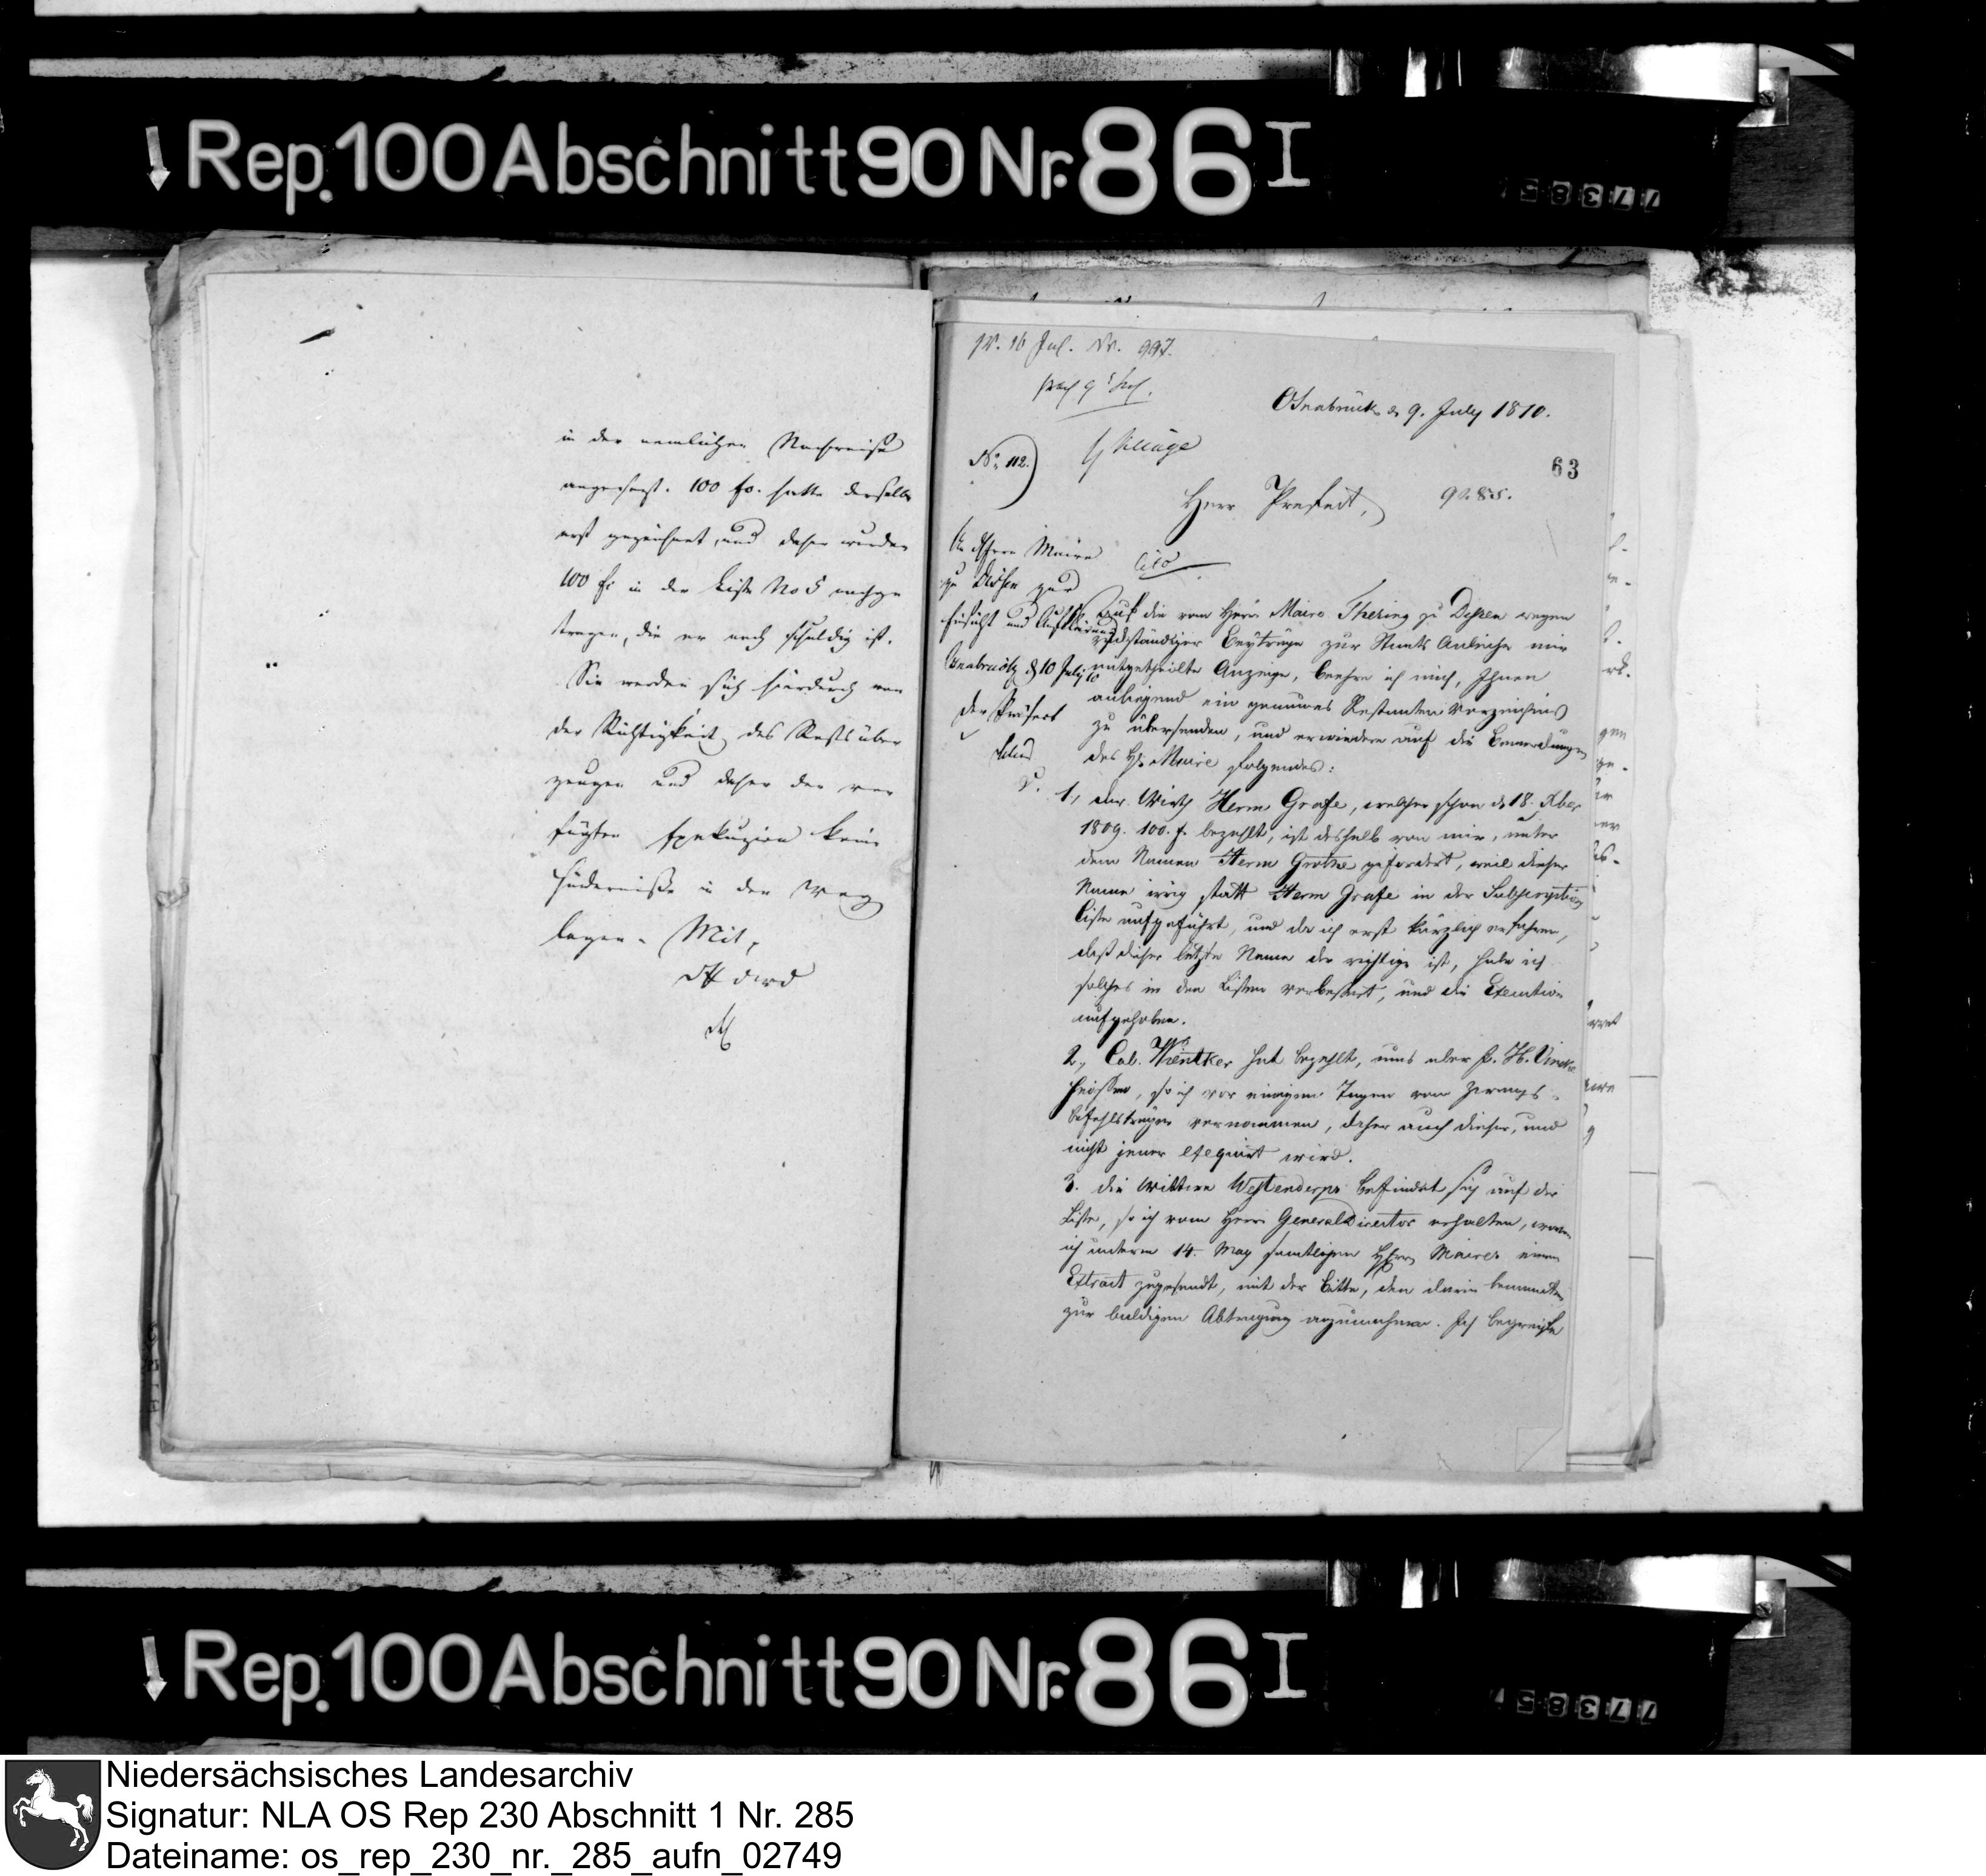 Rep. 100 Abschnitt 90 Nr. 86 I
77385
in der nemlichen Nachweise
angezeigt. 100 fr. hatte derselbe
erst gezeichnet, und daher wurden
100 fr in der Liste No 5 nachge
tragen, die er noch schuldig ist.
Sie werden sich hierdurch von
der Richtigkeit des Rests über
zeugen und daher der ver
fügten Exekuzion keine
Hinderniße in den Weg
legen.
pr. 16 Jul. Nr. 997.
Osnabrück d. 9. July 1810.
No. 112.
63
Herr Prefect,
cito
An Herrn Maire
zu Dissen zur
Einsicht und Aufklärung
Osnabrück d 10 July 10
Der Präfect
Auf die vom Herrn Maire Thering zu Dissen wegen
rückständiger Beyträge zur Staats Anleihe mir
mitgetheilte Anzeige, beehre ich mich, Ihnen
anliegend ein genaues Restanten Verzeichnis
zu übersenden, und erwiedere auf die Bemerkungen
des H. Maire folgendes:
1., der Wirth Herm Grafe, welcher schon d 18. Xber
1809. 100. f. bezahlt, ist deshalb von mir, unter
dem Namen Herm Grothe gefordert, weil dieser
Name irrig statt Herm Grafe in der Subscription
Liste aufgeführt, und da ich erst kürzlich erfahren,
daß dieser letzte Name der richtige ist, habe ich
solches in den Listen verbessert, und die Execution
aufgehoben.
2., Col. Wientker hat bezahlt, muß aber
heissen, so ich vor einigen Tagen vom Zwangs-
befehlsträger vernommen, daher auch dieser, und
nicht jener exequirt wird.
3. die Wittwe Westendorp befindet sich auf der
Liste, so ich vom Herrn GeneralDirector erhalten, wovon
ich unterm 14. May samtlichen Herrn Maires einen
Extract zugesandt, mit der Bitte, den darin benannten
zur baldigen Abtragung anzumahnen. Ich begreife
Rep. 100 Abschnitt 90 Nr. 86 I
77385
Niedersächsisches Landesarchiv
Signatur: NLA OS Rep 230 Abschnitt 1 Nr. 285
Dateiname: os_rep_230_nr._285_aufn_02749